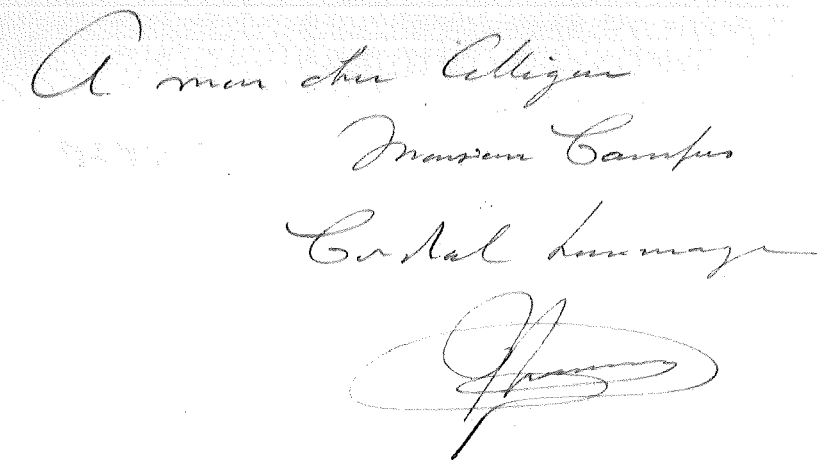 A mon cher Collègue
Monsieur Campus
Cordial hommage